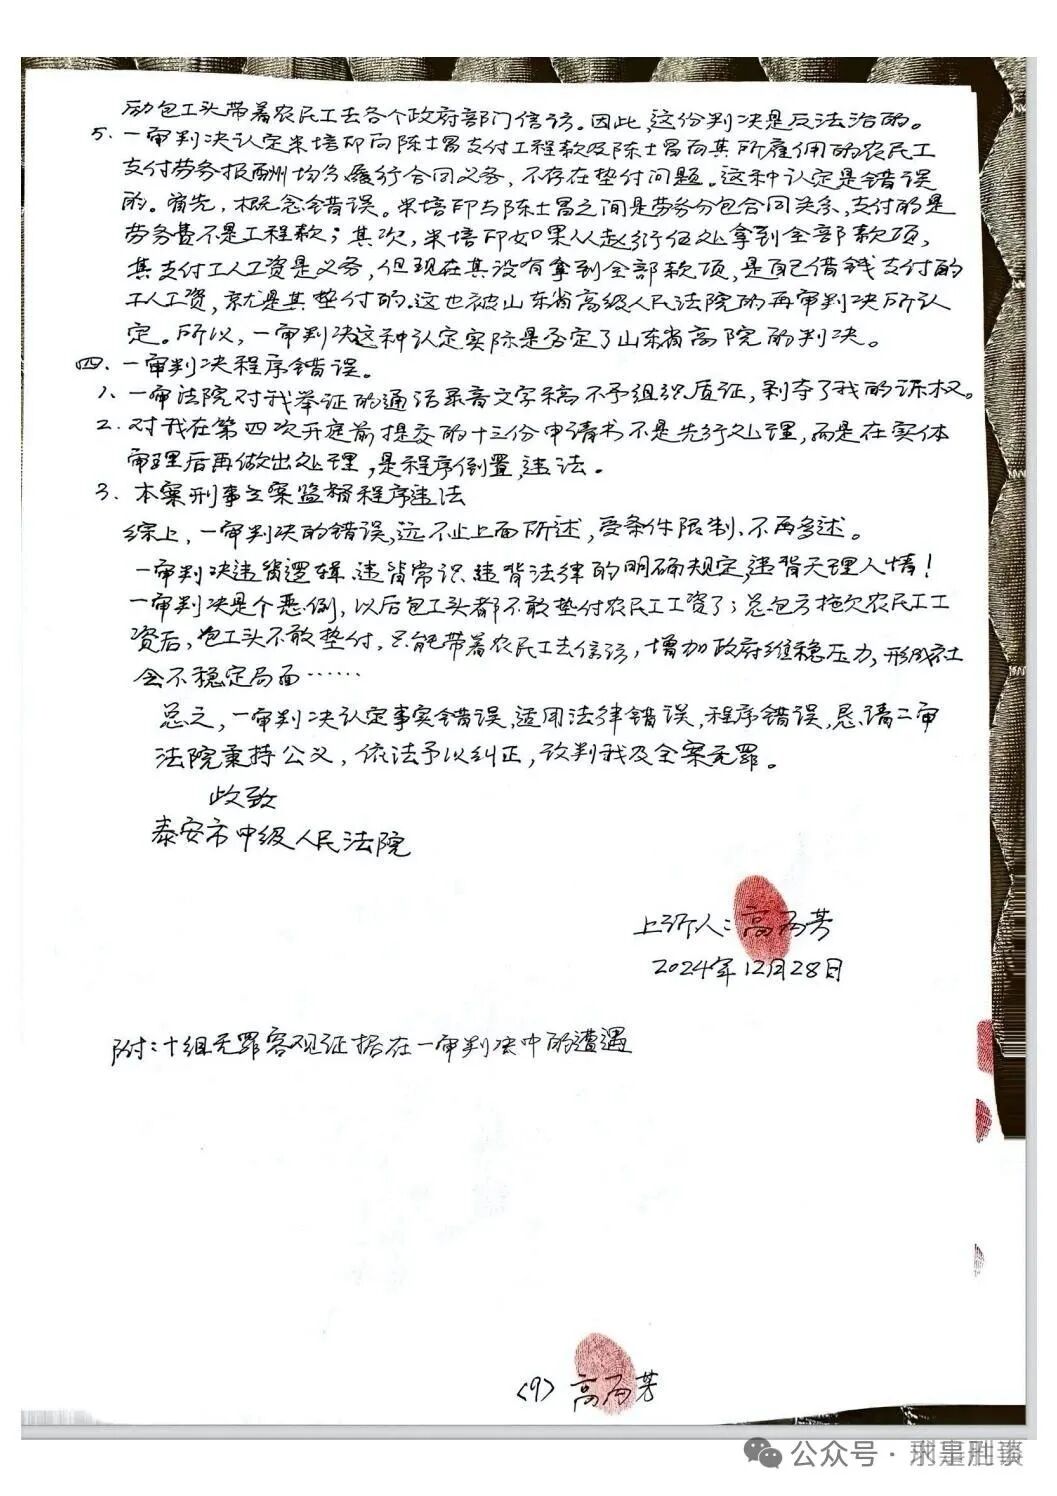 励包工头带着农民工去各个政府部门信访。因此,这份判决是反法治的。
5、一审判决认定米培印向陈士昌支付工程款及陈士昌向其所雇佣的农民工
支付劳务报酬均为履行合同义务,不存在垫付问题。这种认定是错误
的。首先,概念错误。米培印与陈士昌之间是劳务分包合同关系,支付的是
劳务费不是工程款;其次,米培印如果从赵衍任处拿到全部款项,
其支付工人工资是义务,但现在其没有拿到全部款项,是自己借钱支付的
工人工资,就是其垫付的。这也被山东省高级人民法院的再审判决所认
定。所以,一审判决这种认定实际是否定了山东省高院的判决。
四、一审判决程序错误。
1、一审法院对我举证的通话录音文字稿不予组织质证,剥夺了我的诉权。
2、对我在第四次开庭前提交的十三份申请书不是先行处理,而是在实体
审理后再做出处理,是程序倒置,违法。
3、本案刑事立案监督程序违法
综上,一审判决的错误,远不止上面所述,受条件限制,不再多述。
一审判决违背逻辑、违背常识、违背法律的明确规定,违背天理人情!
一审判决是个恶例,以后包工头都不敢垫付农民工工资了;总包方拖欠农民工工
资后,包工头不敢垫付,只能带着农民工去信访,增加政府维稳压力,形成社
会不稳定局面……
总之,一审判决认定事实错误,适用法律错误,程序错误,恳请二审
法院秉持公义,依法予以纠正,改判我及全案无罪。
此致
泰安市中级人民法院
上诉人:高丙芳
2024年12月28日
附:十组无罪客观证据在一审判决中的遭遇
(9) 高丙芳
公众号·